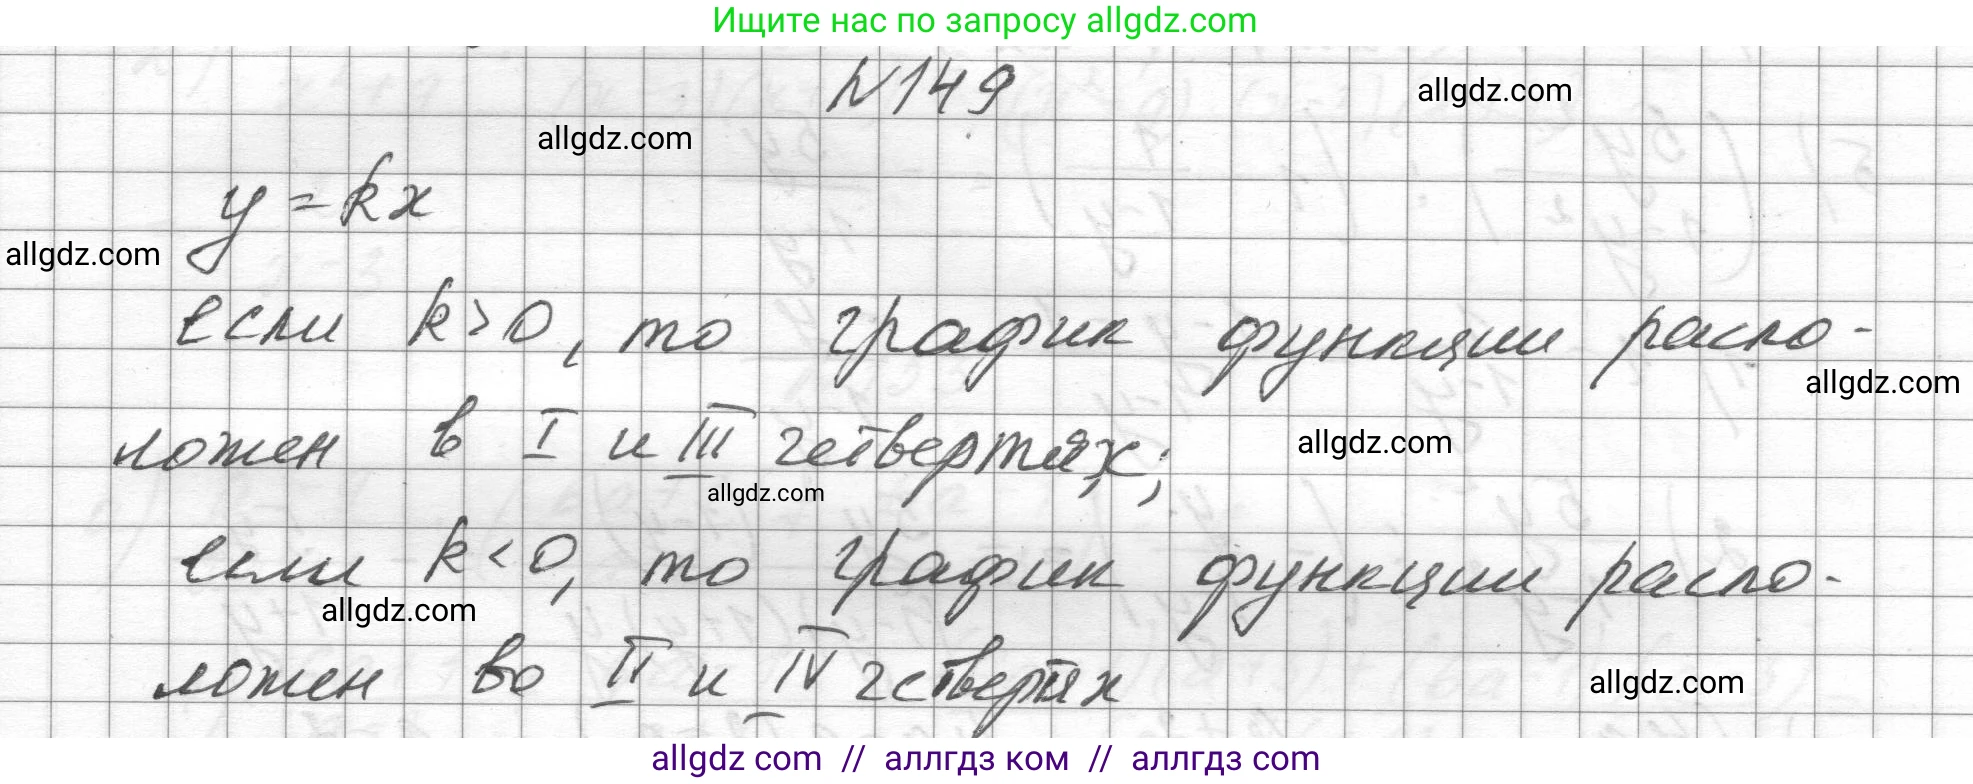 Ищите нас по запросу allgdz.com
N149
allgdz.com
allgdz.com
y = kx
allgdz.com
если k > 0, то график функции распо-
allgdz.com
ложен в I и III четвертях;
allgdz.com
allgdz.com
если k < 0, то график функции распо-
allgdz.com
ложен во II и IV четвертях
allgdz.com
allgdz com // аллгдз ком // аллгдз com